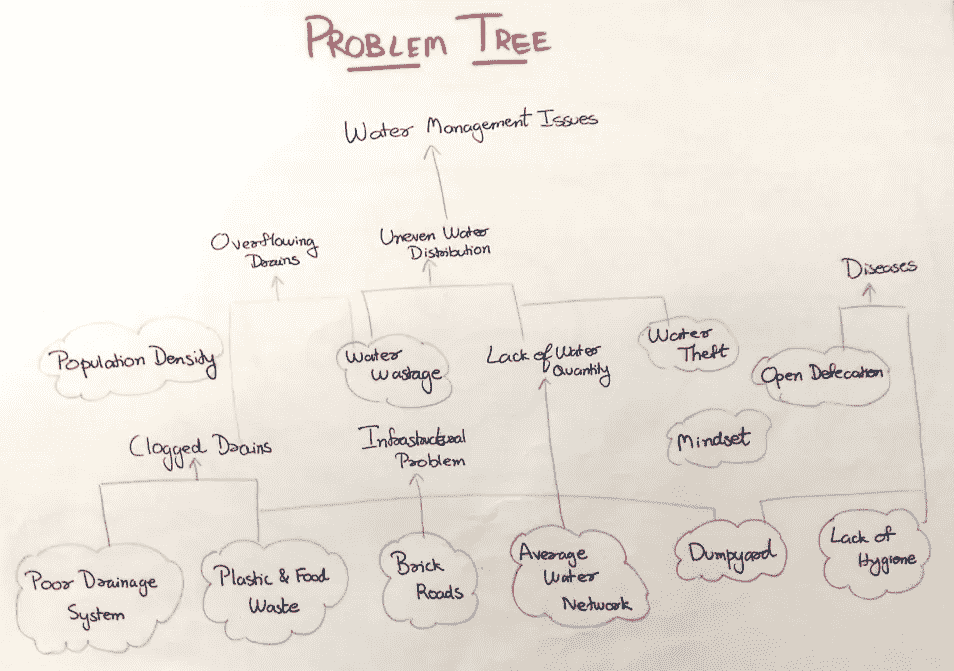 PROBLEM TREE
Water Management Issues
Overflowing
Drains
Uneven Water
Distribution
Diseases
Population Density
Water
Wastage
Lack of Water
Quantity
Water
Theft
Open Defecation
Mindset
Clogged Drains
Infrastructural
Problem
Poor Drainage
System
Plastic & Food
Waste
Brick
Roads
Average
Water
Network
Dumpyard
Lack of
Hygiene